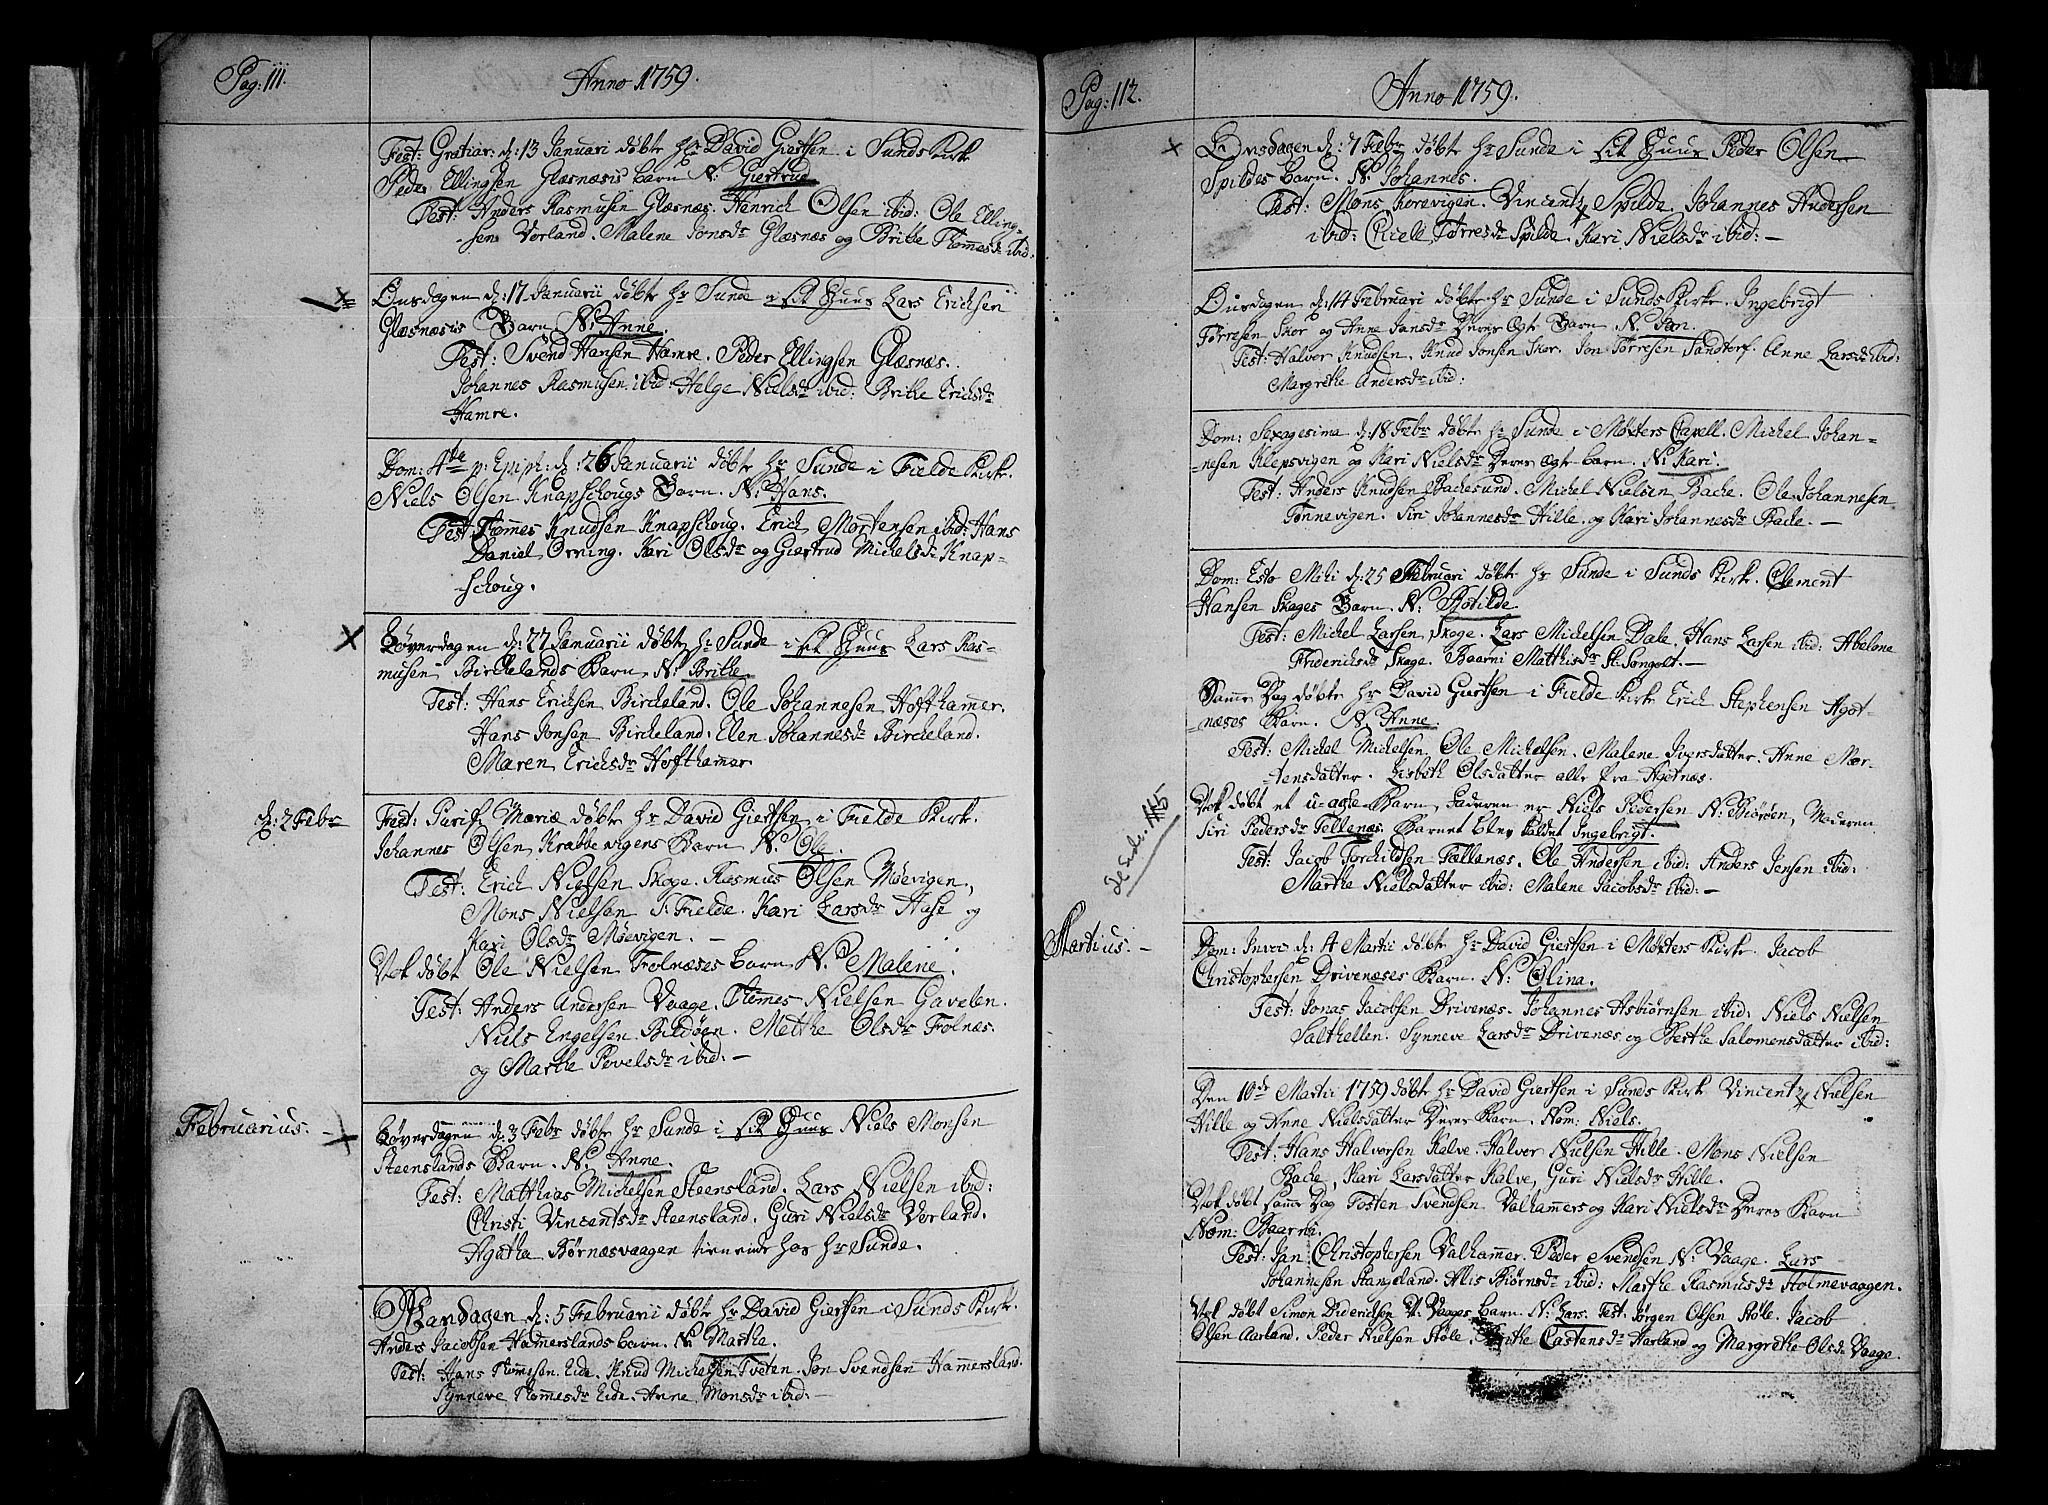 Pag: 111.
Anno 1759.
Fest: Gratiar: d: 13 Januari døbte Hr David Giertsen i Sunds Kirk
Peder Ellingsen Glæsnæsis barn N: Giertrud
Test: Anders Rasmusen Glæsnæs. Henrich Olsen ibid: Ole Elling-
-sen Vorland. Malene Jonsdr Glæsnæs og Britte Thomesdr ibid.
Onsdagen d: 17 Januarii døbte Hr Sunde i sit Huus Lars Erichsen
Glæsnæsis Barn N: Anne.
Test: Svend Hansen Hamre. Peder Ellingsen Glæsnæs.
Johannes Rasmusen ibid. Helge Nielsdr ibid: Britte Erichsdr
Hamre.
Dom: 4te p: Epiph: d: 26 Januarii døbte Hr Sunde i Fielde Kirk.
Niels Olsen Knapschougs Barn. N: Hans.
Test: Thomes Knudsen Knapschoug. Erich Mortensen ibid: Hans
Daniel Orning. Kari Olsdr og Giertrud Michelsdr Knap-
-schoug.
Løverdagen d: 27 Januarii døbte Hr Sunde i sit Huus Lars Ras-
musen Birchelands Barn N: Britte.
Test: Hans Erichsen Bircheland. Ole Johannesen Hofthamer.
Hans Jonsen Bircheland. Elen Johannesdr Bircheland.
Maren Erichsdr Hofthamer
d: 2 Febr
Fest: Purif: Mariæ døbte Hr David Giertsen i Fielde Kirk.
Johannes Olsen Krabbevigens Barn N. Ole.
Test: Erich Nielsen Skoge. Rasmus Olsen Møevigen,
Mons Nielsen S: Fielde. Kari Larsdr Aase og
Kari Olsdr Møevigen. -
Nok døbt Ole Nielsen Folnæses barn N. Malene.
Test: Anders Andersen Vaage. Thomes Nielsen Gavelen.
Niels Engelsen Bildøen. Metthe Olsdr Folnæs.
og Marthe Povelsdr ibid: -
Februarius: -
Løverdagen d: 3 Febr døbte Hr Sunde i sit Huus Niels Monsen
Steenslands Barn. N: Anne.
Test: Matthias Michelsen Steensland. Lars Nielsen ibid:
Christi Vincentsdr Steensland. Guri Nielsdr Vorland.
Agatha Børnæsvaagen tienende hos Hr Sunde.
Mandagen d: 5 Februarii døbte Hr David Giertsen i Sunds Kirk.
Anders Jacobsen Hamerslands barn. N: Marthe.
Test: Hans Thomesen Eide. Knud Michelsen Tveten. Jon Svendsen Hamersland.
Synneve Thomesdr Eide. Anne Monsdr ibid: -
Pag: 112.
Anno 1759.
Onsdagen d: 7 Febr døbte Hr Sunde i sit Huus Peder Olsen
Spildes barn. N. Johannes.
Test: Mons Korevigen. Vincentz Spilde. Johannes Andersen
ibid: Torresdr Spilde. Kari Nielsdr ibid: -
Onsdagen d: 14 Februari døbte Hr Sunde i Sunds Kirke. Ingebrigt
Torresen Skor og Anne Jansdr Deres Ægte Barn N. Jon.
Test: Halvor Knudsen. Knud Jonsen Skor. Jon Torresen Sandtorf. Anne Larsdr ibid:
Margrethe Andersdr ibid:
Dom: Sexagesima d: 18 Febr døbte Hr Sunde i Møxters Capell. Michel Johan-
-nesen Klepsvigen og Kari Nielsdr Deres Ægte barn. N: Kari.
Test: Anders Knudsen Bachesund. Michel Nielsen Bache. Ole Johannesen
Tønnevigen. Siri Johannesdr Hille. og Kari Johannesdr Bache. -
Dom: Esto Mihi d: 25 Februari døbte Hr Sunde i Sunds Kirk. Clement
Hansen Skoges Barn. N: Botilde
Test: Michel Larsen Skoge. Lars Michelsen Dale. Hans Larsen ibid: Abelone
Friderichsdr Skoge. Baarni Matthisdr St: Songolt. -
Samme Dag døbte Hr David Giertsen i Fielde Kirk Erich Stephensen Agot-
-næses Barn. N. Anne.
Test: Michel Michelsen, Ole Michelsen. Malene Iversdatter. Anne Mor-
-tensdatter. Lisbeth Olsdatter alle fra Agotnæs.
Nok døbt et u-ægte Barn, Faderen er Niels Pedersen N: Biørøen, Moderen
Siri Pedersdr Tellenæs. Barnet blev kaldet Ingebrigt.
Test: Jacob Torchildsen Tællenæs. Ole Andersen ibid: Anders Jensen ibid:
Marthe Nielsdatter ibid: Malene Jacobsdr ibid: -
Martius: -
Dom: Invoc d: 4 Martii døbte Hr David Giertsen i Møxters Kirk. Jacob
Christophersen Drivenæses Barn. N: Olina.
Test: Jonas Jacobsen Drivenæs. Johannes Asbiørnsen ibid: Niels Nielsen
Salthellen. Synneve Larsdr Drivenæs og Berthe Salomonsdatter ibid:
Den 10de Martii 1759 døbte Hr David Giertsen i Sunds Kirk Vincentz Nielsen
Hille og Anne Nielsdatter Deres Barn. Nom: Niels.
Test: Hans Halvorsen Kalve. Halvor Nielsen Hille. Mons Nielsen
Bache, Kari Larsdatter Kalve, Guri Nielsdr Hille.
Nok døbt samme Dag Tosten Svendsen Valhammer og Kari Nielsdr Deres Barn
Nom: Baarni.
Test: Jan Christophersen Valhamer. Peder Svendsen N: Vaage. Lars
Johannesen Stangeland. Alis Biørnsdr ibid: Marthe Rasmusdr Holmevaagen.
Nok døbt Simon Diderichsen V: Vaages barn. N: Lars. Test: Jørgen Olsen Støle. Jacob
Olsen Aarland. Peder Nielsen Støle. Castensdr Aarland og Margrethe Olsdr Vaage.